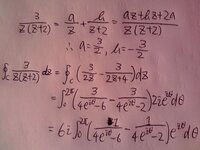 3/(z(z+2)) = a/z + b/(z+2) = (az+bz+2a)/(z(z+2))
∴ a=3/2, b=-3/2
∮c 3/(z(z+2)) dz = ∮c (3/2z - 3/(2z+4)) dz
= ∫₀^2π (3/(4e^iθ-6) - 3/(4e^iθ-2)) 2ie^iθ dθ
= 6i ∫₀^2π (1/(4e^iθ-6) - 1/(4e^iθ-2)) e^iθ dθ